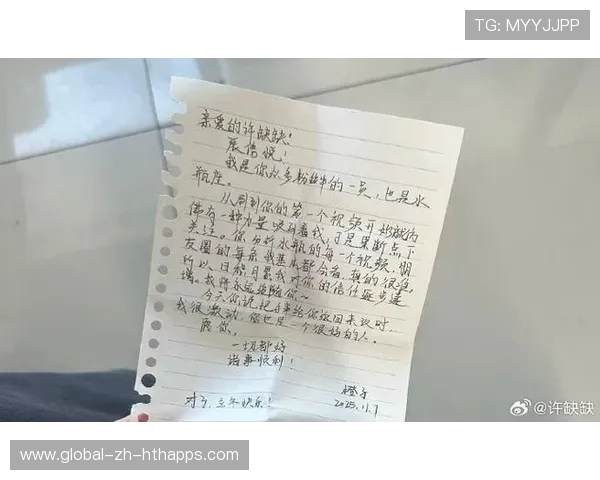 TG: MYYJJPP
亲爱的许缺缺！
展信悦！
我是你众多粉丝中的一员，也是水
瓶座。
从刷到你的第一个视频开始就仿
佛有一种力量吸引着我，于是果断点下
关注。你分析水瓶的每一个视频，朋
友圈的每条我基本都会看，真的很准，
所以日积月累我对你的信任逐步递
增。我将永远追随你～
今天你说把手串给你返回来议时，
我很激动，你也是一个很好的人。
愿你，
一切都好
诸事顺利！
橙子
2025.11.7
对了，立冬快乐！
@许缺缺
www.global-zh-hthapps.com